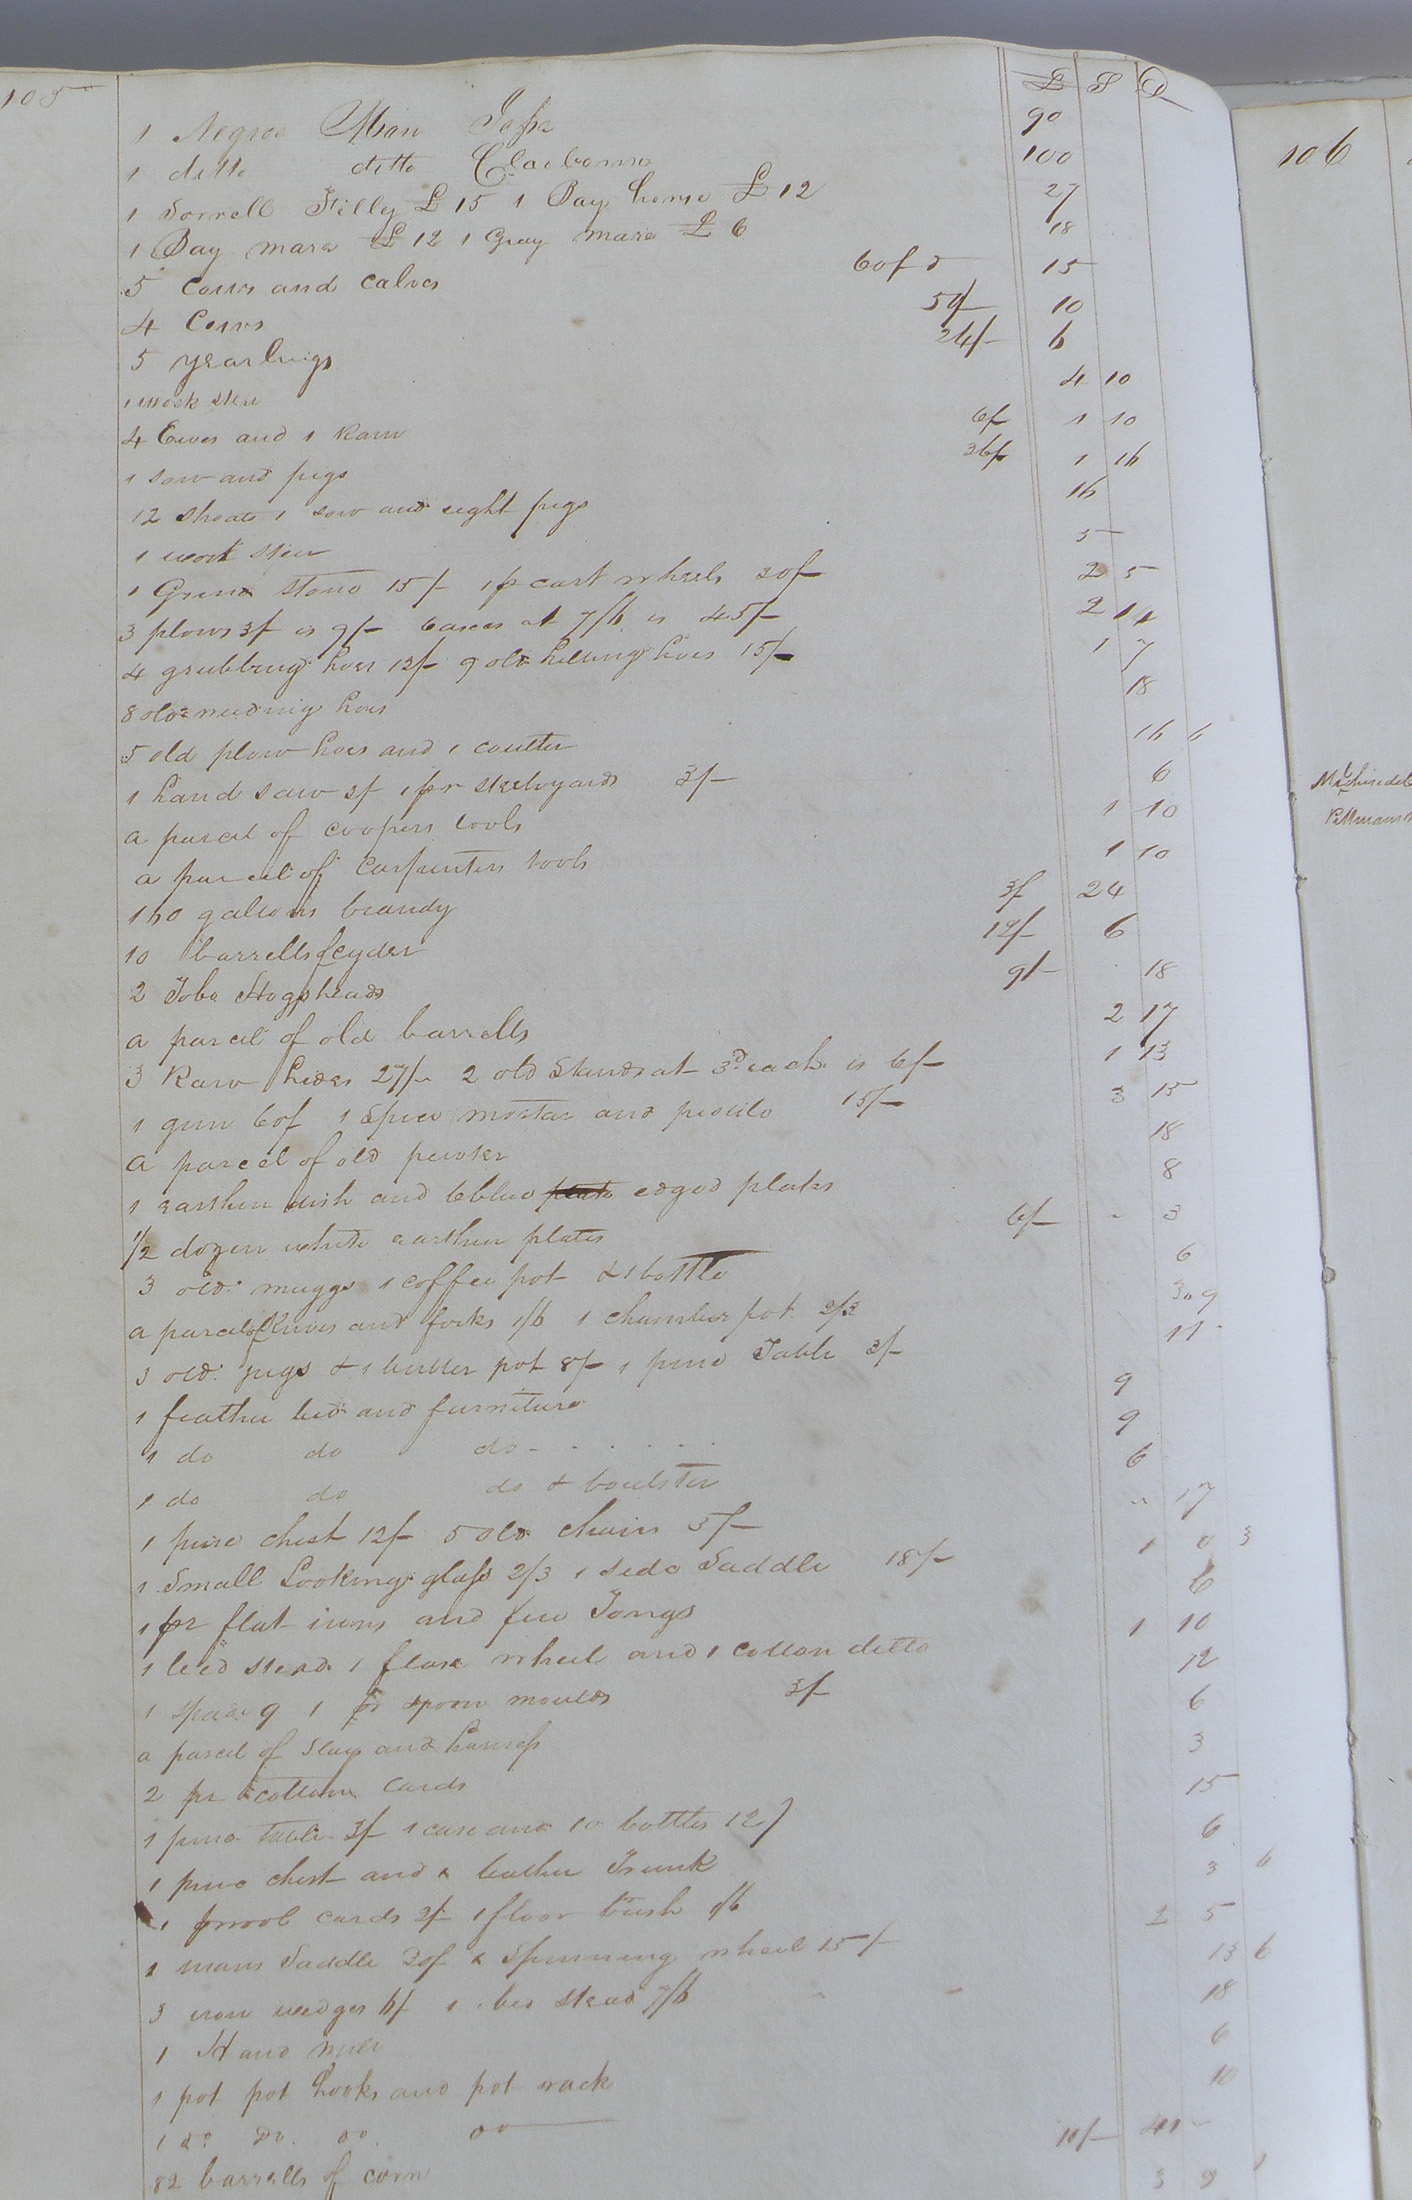 105
£ S D
1 Negroe Man Jesse 90
1 ditto ditto Claiborne 100
1 Sorrell Filly £15 1 Bay horse £12 27
1 Bay mare £12 1 Gray mare £6 18
5 cows and calves 60/ 15
4 Cows 50/- 10
5 yearlings 24/- 6
1 work steer 4 10
4 Ewes and 1 Ram 6/ 1 10
1 sow and pigs 36/ 1 16
12 shoats 1 sow and eight pigs 16
1 work steer 5
1 Grind stone 15/- 1 pr cart wheels 30/- 2 5
3 plows 3/ is 9/- 6 axes at 7/6 is 45/- 2 14
4 grubbing hoes 12/- 9 old hilling hoes 15/- 1 7
8 old weeding hoes 18
5 old plow hoes and 1 coulter 16 6
1 hand saw 3/ 1 pr steelyards 3/- 6
a parcel of coopers tools 1 10
a parcel of carpenters tools 1 10
160 gallons brandy 3/ 24
10 barrells of cyder 12/- 6
2 Tobo Hogsheads 9/- 18
a parcel of old barrells 2 17
3 Raw hides 27/- 2 old stands at 3d each is 6/- 1 13
1 gun 60/ 1 Spice mortar and pestle 15/- 3 15
a parcel of old pewter 18
1 earthen dish and 6 blue edged plates 8
1/2 dozen white earthen plates 6/- 3
3 old muggs 1 coffee pot & 1 bottle 6
a parcel of knives and forks 1/6 1 chamber pot 2/3 3 9
3 old jugs & 1 butter pot 8/- 1 pine Table 3/- 11
1 feather bed and furniture 9
1 do do do 9
1 do do do & boulster 6
1 pine chest 12/- 5 old chairs 5/- 17
1 Small Looking glass 2/3 1 side Saddle 18/- 1 0 3
1 pr flat irons and fire Tongs 6
1 bed stead 1 flax wheel and 1 cotton ditto 1 10
1 spade 9 1 pr spoon moulds 3/- 12
a parcel of Slays and harness 6
2 pr cotton cards 3
1 pine table 3/- 1 case and 10 bottles 12/ 15
1 pine chest and a leather Trunk 6
1 pr wool cards 2/- 1 floor brush 1/6 3 6
1 mans Saddle 30/ a Spinning wheel 15/- 2 5
3 iron wedges 6/ 1 bed stead 7/6 13 6
1 Hand mill 18
1 pot pot hooks and pot rack 6
1 do. do. do. do 10
82 barrells of corn 10/- 41
3 9 1
106